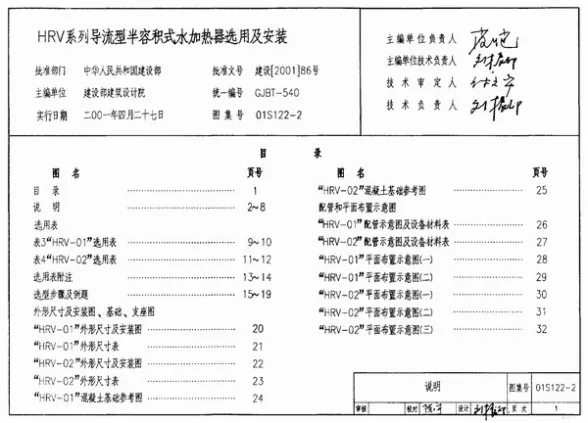 HRV系列导流型半容积式水加热器选用及安装
批准部门 中华人民共和国建设部 批准文号 建设[2001]86号
主编单位 建设部建筑设计院 统一编号 GJBT-540
实行日期 二00一年四月二十七日 图集号 01S122-2
主编单位负责人
主编单位技术负责人
技术审定人
技术负责人
目 录
图名 页号
目 录 1
说 明 2~8
选用表
表3"HRV-01"选用表 9~10
表4"HRV-02"选用表 11~12
选用表附注 13~14
选型步骤及例题 15~19
外形尺寸及安装图、基础、支座图
"HRV-01"外形尺寸及安装图 20
"HRV-01"外形尺寸表 21
"HRV-02"外形尺寸及安装图 22
"HRV-02"外形尺寸表 23
"HRV-01"混凝土基础参考图 24
图名 页号
"HRV-02"混凝土基础参考图 25
配管和平面布置示意图
"HRV-01"配管示意图及设备材料表 26
"HRV-02"配管示意图及设备材料表 27
"HRV-01"平面布置示意图(一) 28
"HRV-01"平面布置示意图(二) 29
"HRV-02"平面布置示意图(一) 30
"HRV-02"平面布置示意图(二) 31
"HRV-02"平面布置示意图(三) 32
说明 图集号 01S122-2
审核 校对 设计 页次 1